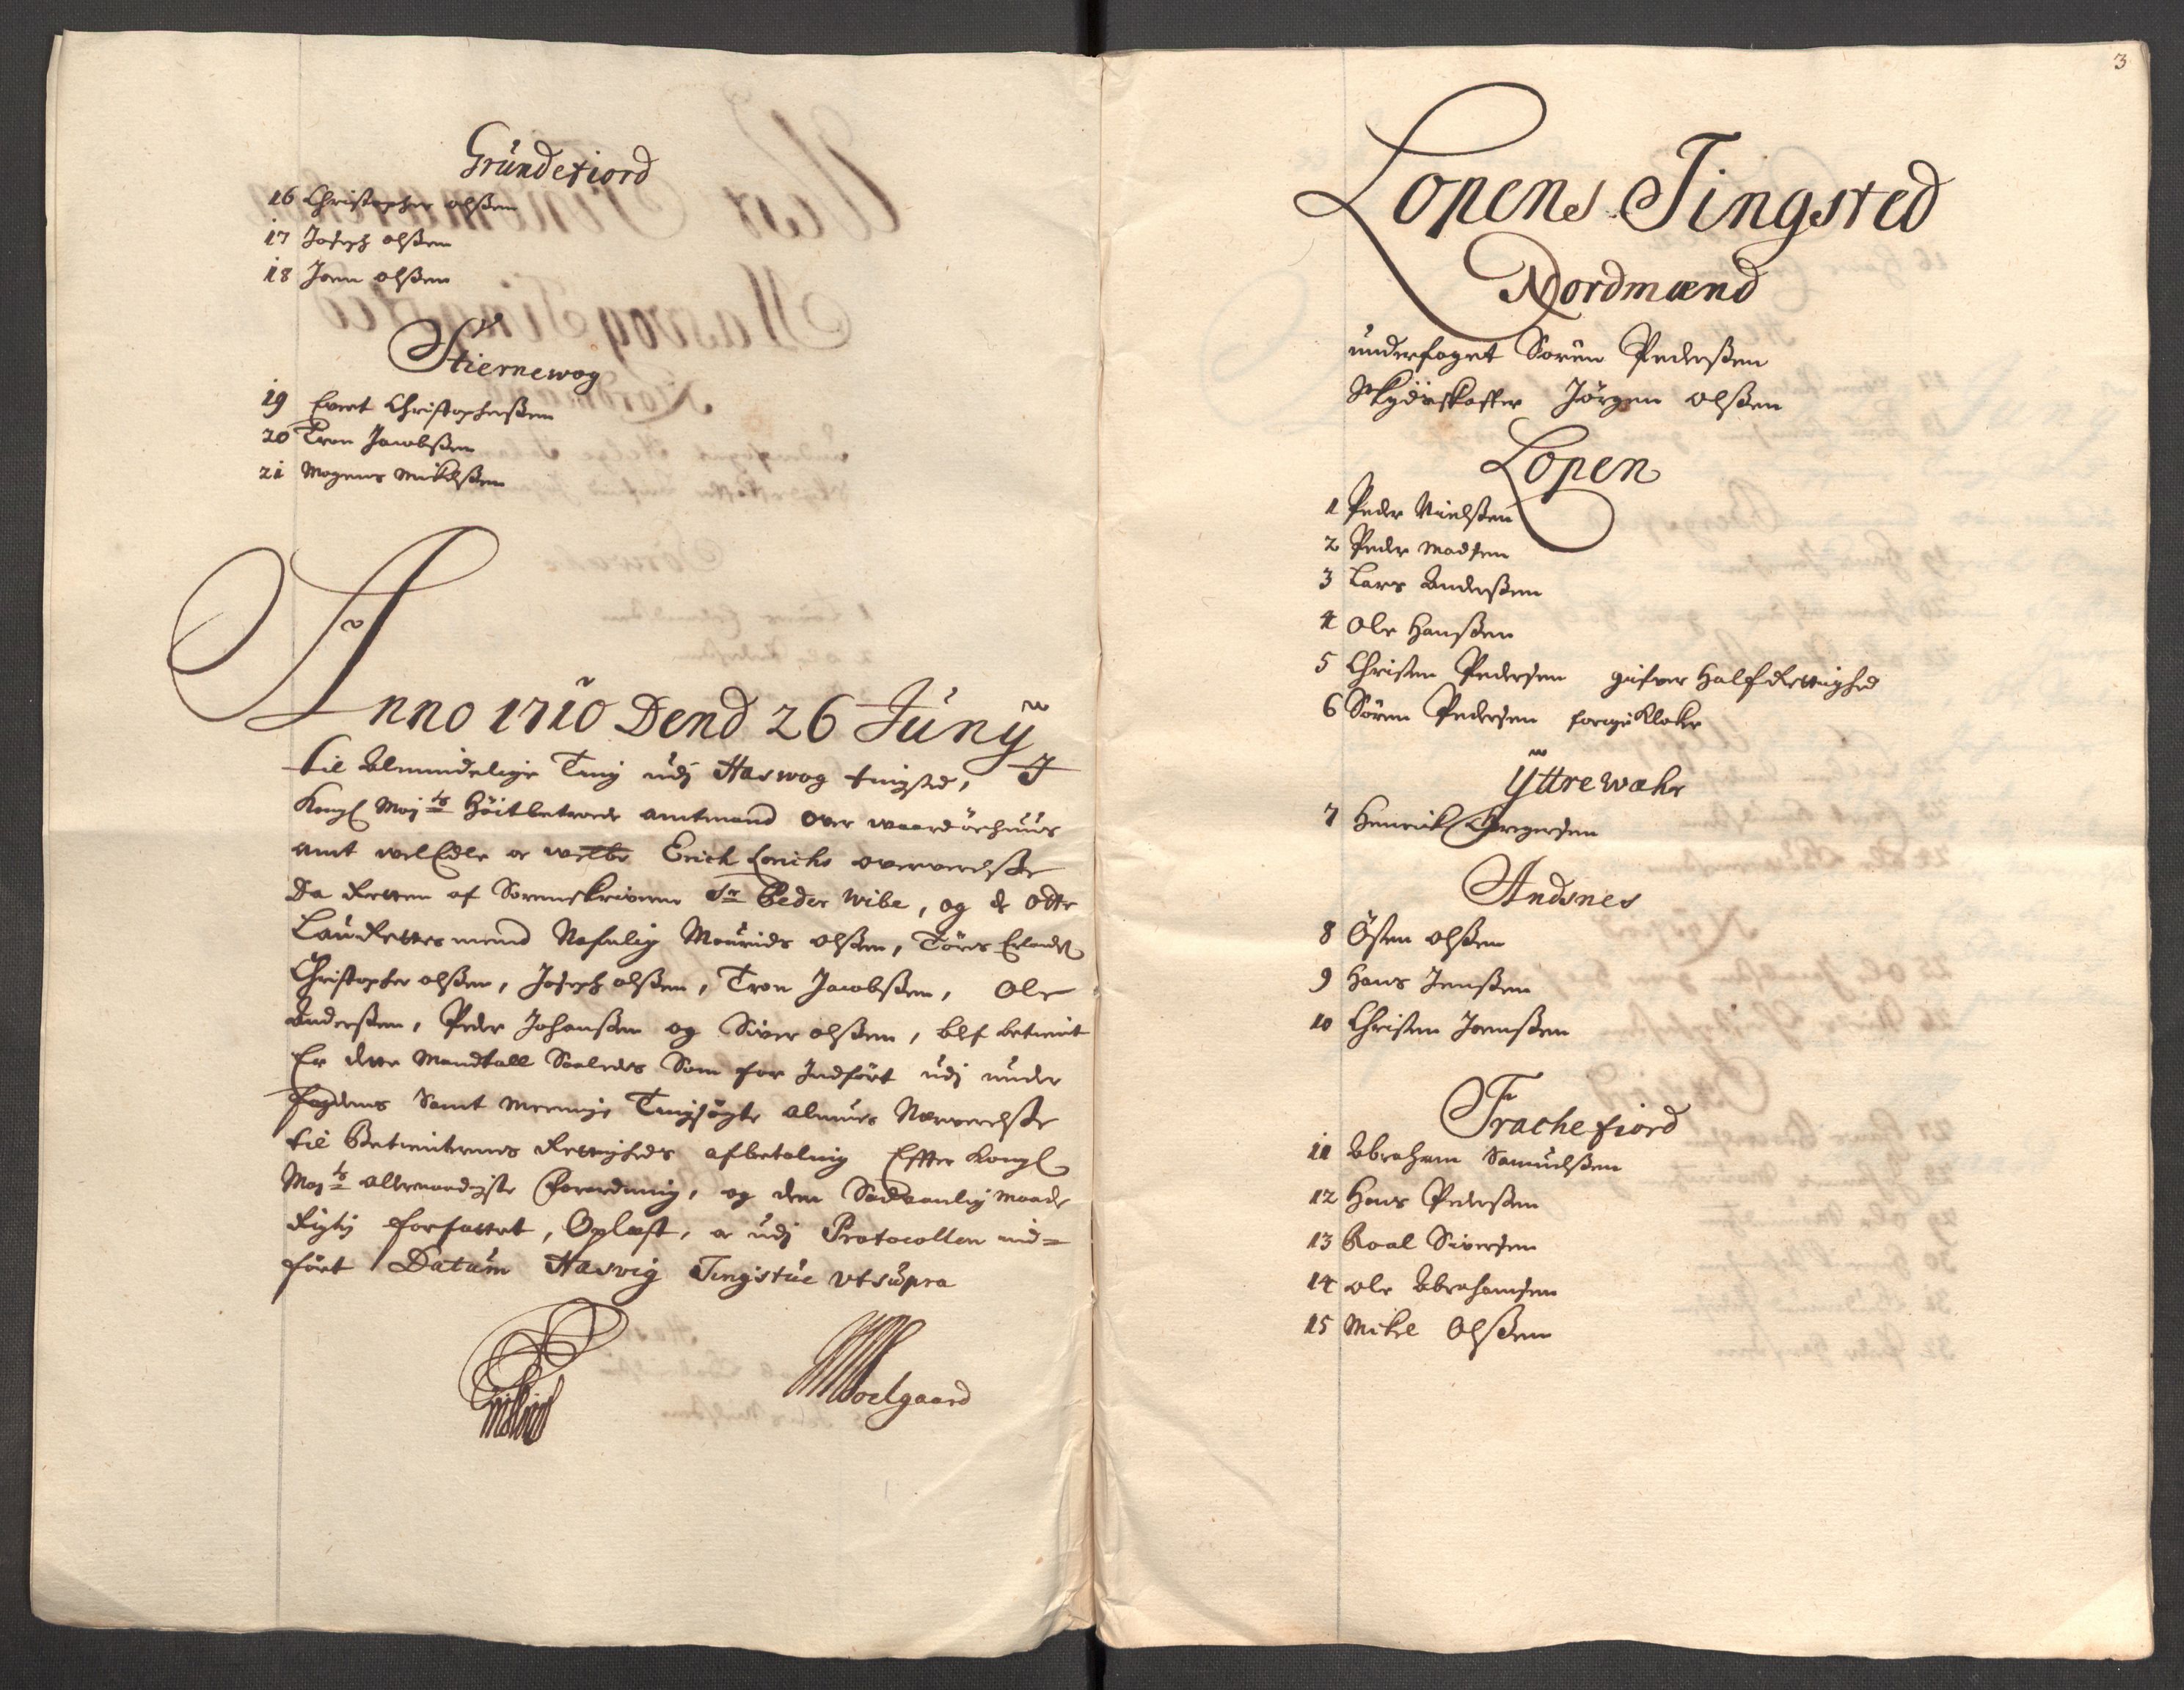 Gründefiord
16 Christopher olßen
17 Joseph olßen
18 Joen olßen
Stiernewog
19 Evert Christopherßen
20 Tron Jacobßen
21 Mogens Mikelßen
Anno 1710 Dend 26 Junÿ
til Almindelige Ting udj Haswog tingsted, J
Kongl Mayts Høitbetroede amtmand over waardøehuus
amt welEdle oc welbr Erich Lorichs overværelße
Da Retten af Sorenskriveren Sr Peder Wibe, og de otte
Laurettes mend Nafnlig Mourids olßen, Törris Erlands
Christopher olßen, Joseph olßen, Tron Jacobßen, Ole
Anderßen, Peder Johanßen og Siver olßen, blef betient
Er dette Mandtall Saaledes Som for Indført udj under
fogdens Samt Meenige Tingsøgte almues Nærværelße
til Betienternes Rettigheds afbetaling Effter Kongl
Mayts allernaadigste forordning, og dend Sædvanlig maade
Rigtig forfattet, Oplæst, oc udj Protocollen ind=
ført Datum Hasvig Tingstue Vtsupra
Woelgaard
3
Lopens Tingsted
Nordmænd
underfoget Sören Pederßen
Skydskaffer Jörgen olßen
Lopen
1 Peder Nielßen
2 Peder Madsen
3 Lars Anderßen
4 Ole Hanßen
5 Christen Pedersen gifver Half Rettighed
6 Sören Pedersen forrige Klocker
Ÿttre wahr
7 Henrich Gregersen
Andsnes
8 Östen olßen
9 Hans Jenßen
10 Christen Joenßen
Frachefiord
11 Abraham Samuelßen
12 Hans Pederßen
13 Roal Siversen
14 ole Abrahamsen
15 Mikel Olßen